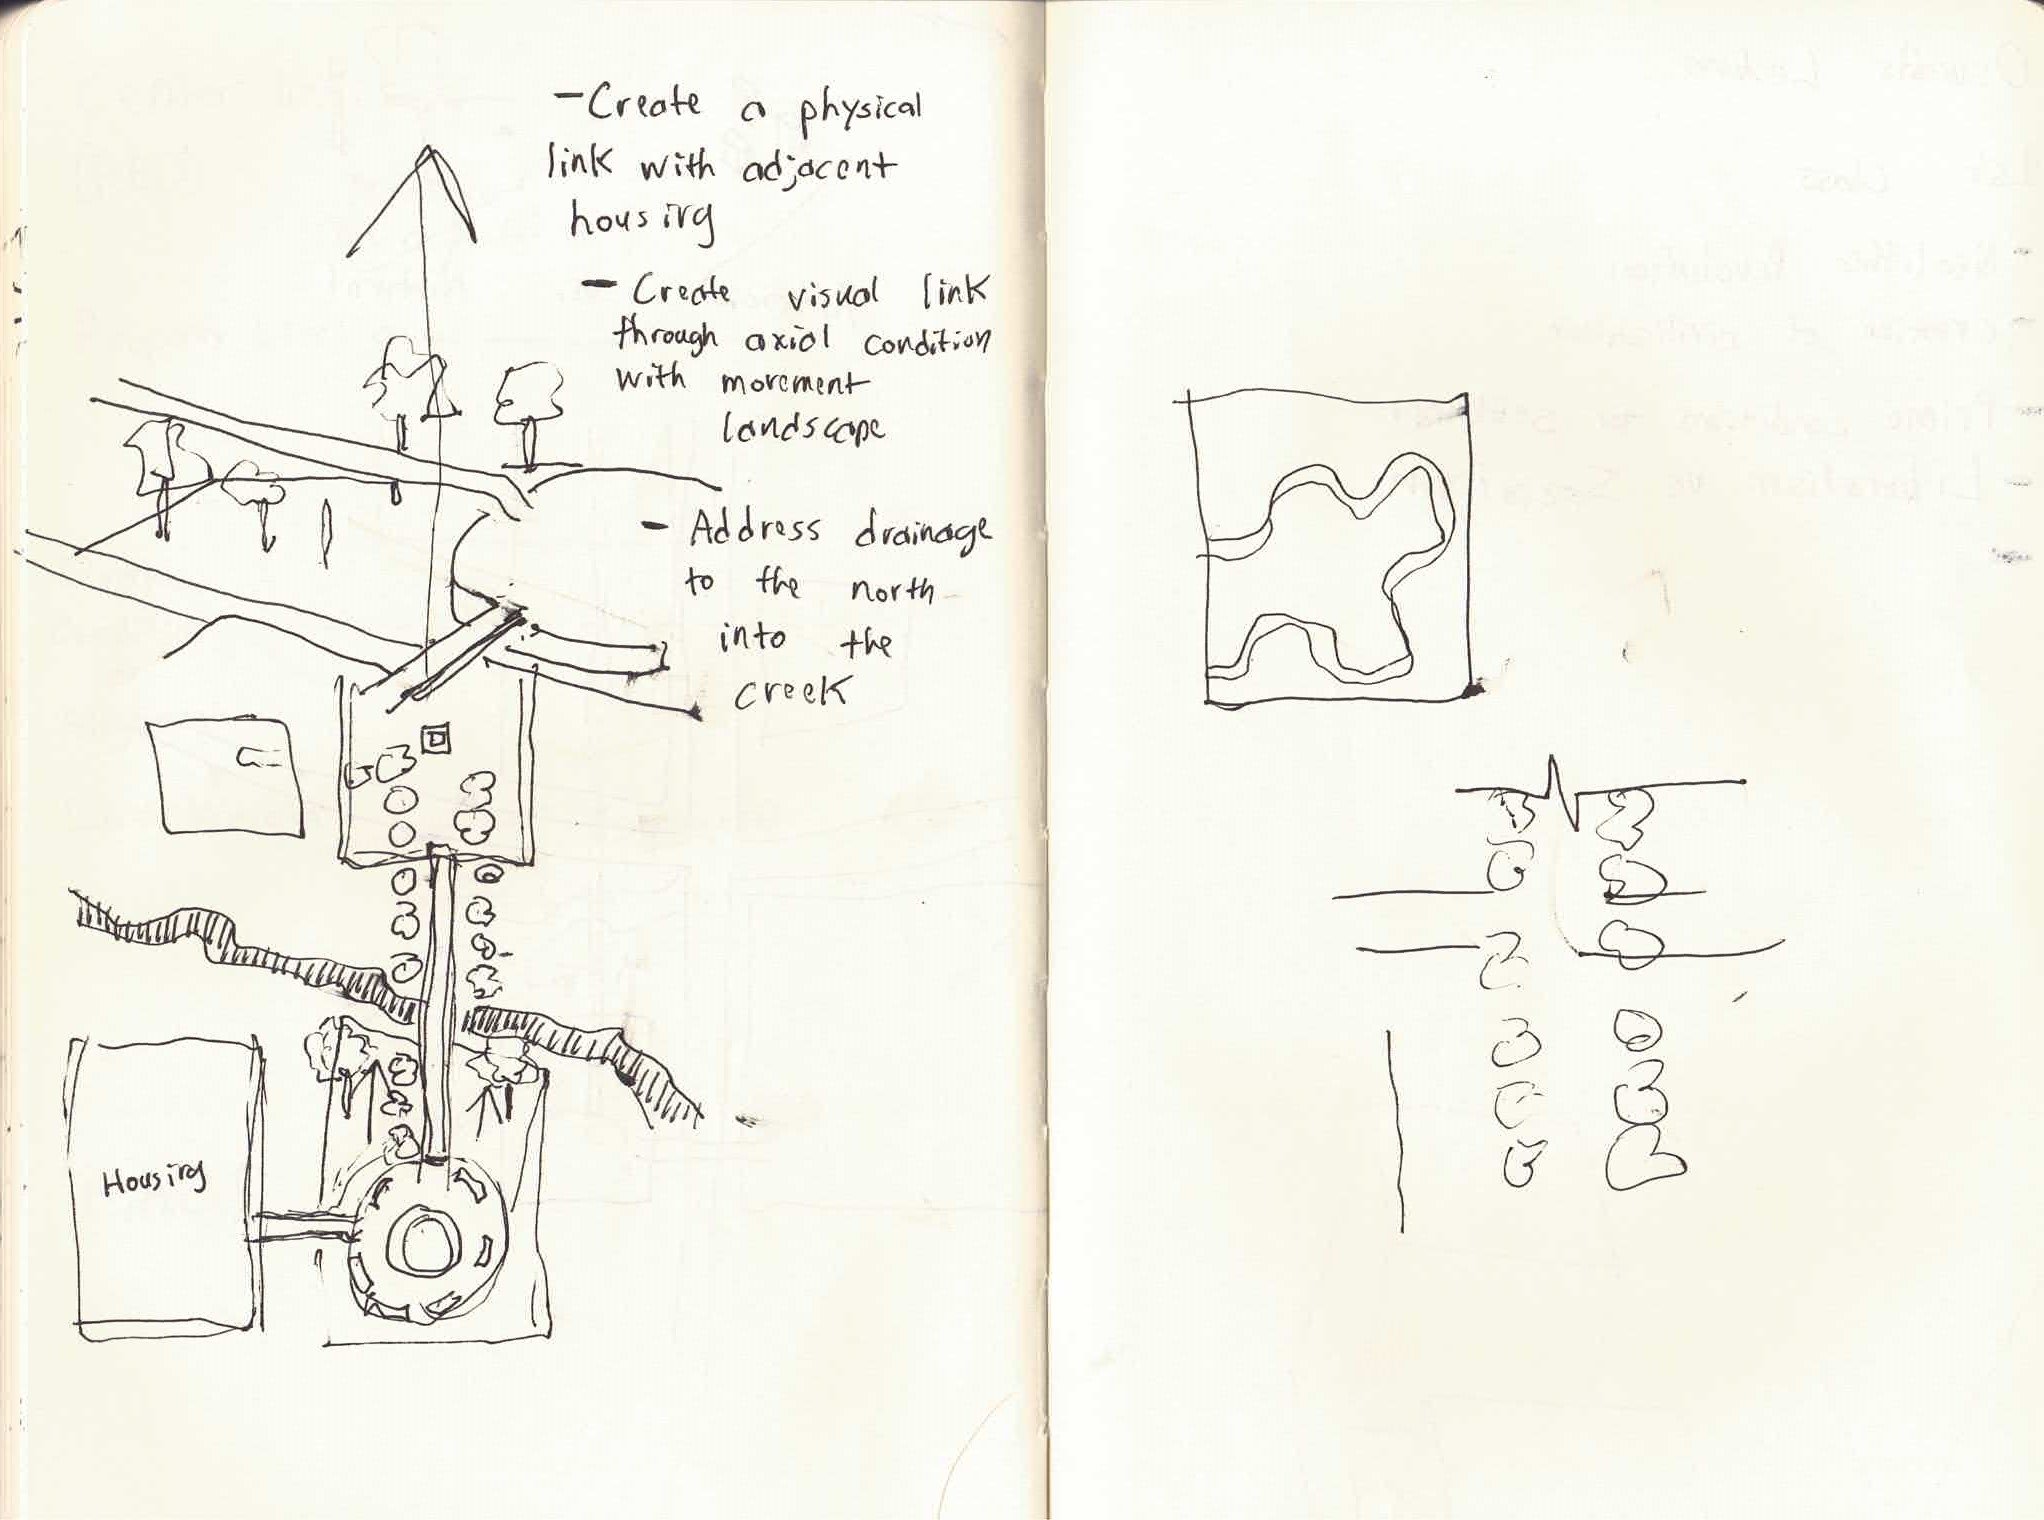 - Create a physical
link with adjacent
housing
- Create visual link
through axial condition
with movement
landscape
- Address drainage
to the north
into the
creek
Housing